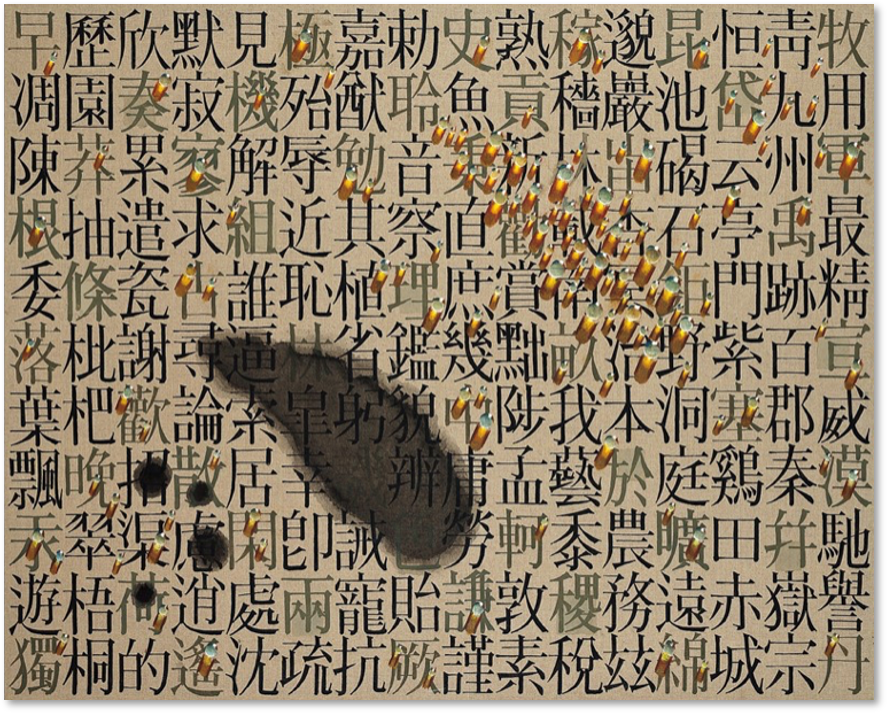 牧用軍最精宣威漠馳譽丹
靑九州禹跡百郡秦幷嶽宗
恒岱云亭門紫塞鷄田赤城
昆池碣石鉅野洞庭曠遠綿
邈巖岫杳冥治本於農務玆
稼穡載南畝我藝黍稷稅
熟貢新勸賞黜陟孟軻敦素
史魚秉直庶幾中庸勞謙謹
勅聆音察理鑑貌辨色貽厥
嘉猷勉其植省躬誡寵抗
極殆辱近恥林皐幸卽兩疏
見機解組誰逼索居閑處沈
默寂寥求古尋論散慮逍遙
欣奏累遣瓷謝歡招渠荷的
歷園莽抽條枇杷晩翠梧桐
早凋陳根委落葉飄遊獨